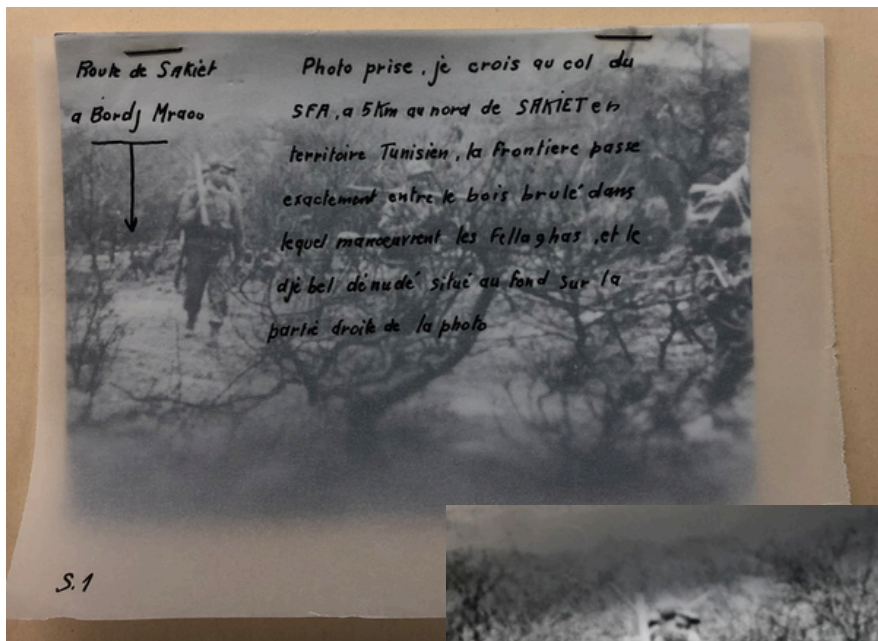 Route de SAkiet
a Bordj Mraou
Photo prise, je crois au col du
SFA, a 5Km au nord de SAKIET en
territoire Tunisien, la frontiere passe
exactement entre le bois brulé dans
lequel manoeuvrent les Fellaghas, et le
djebel dénudé situé au fond sur la
partie droite de la photo
S.1